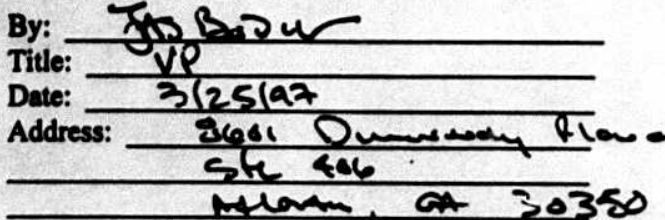 By:
Title: VP
Date: 3/25/97
Address: Dunwoody
Ste 406
Atlanta, GA 30350